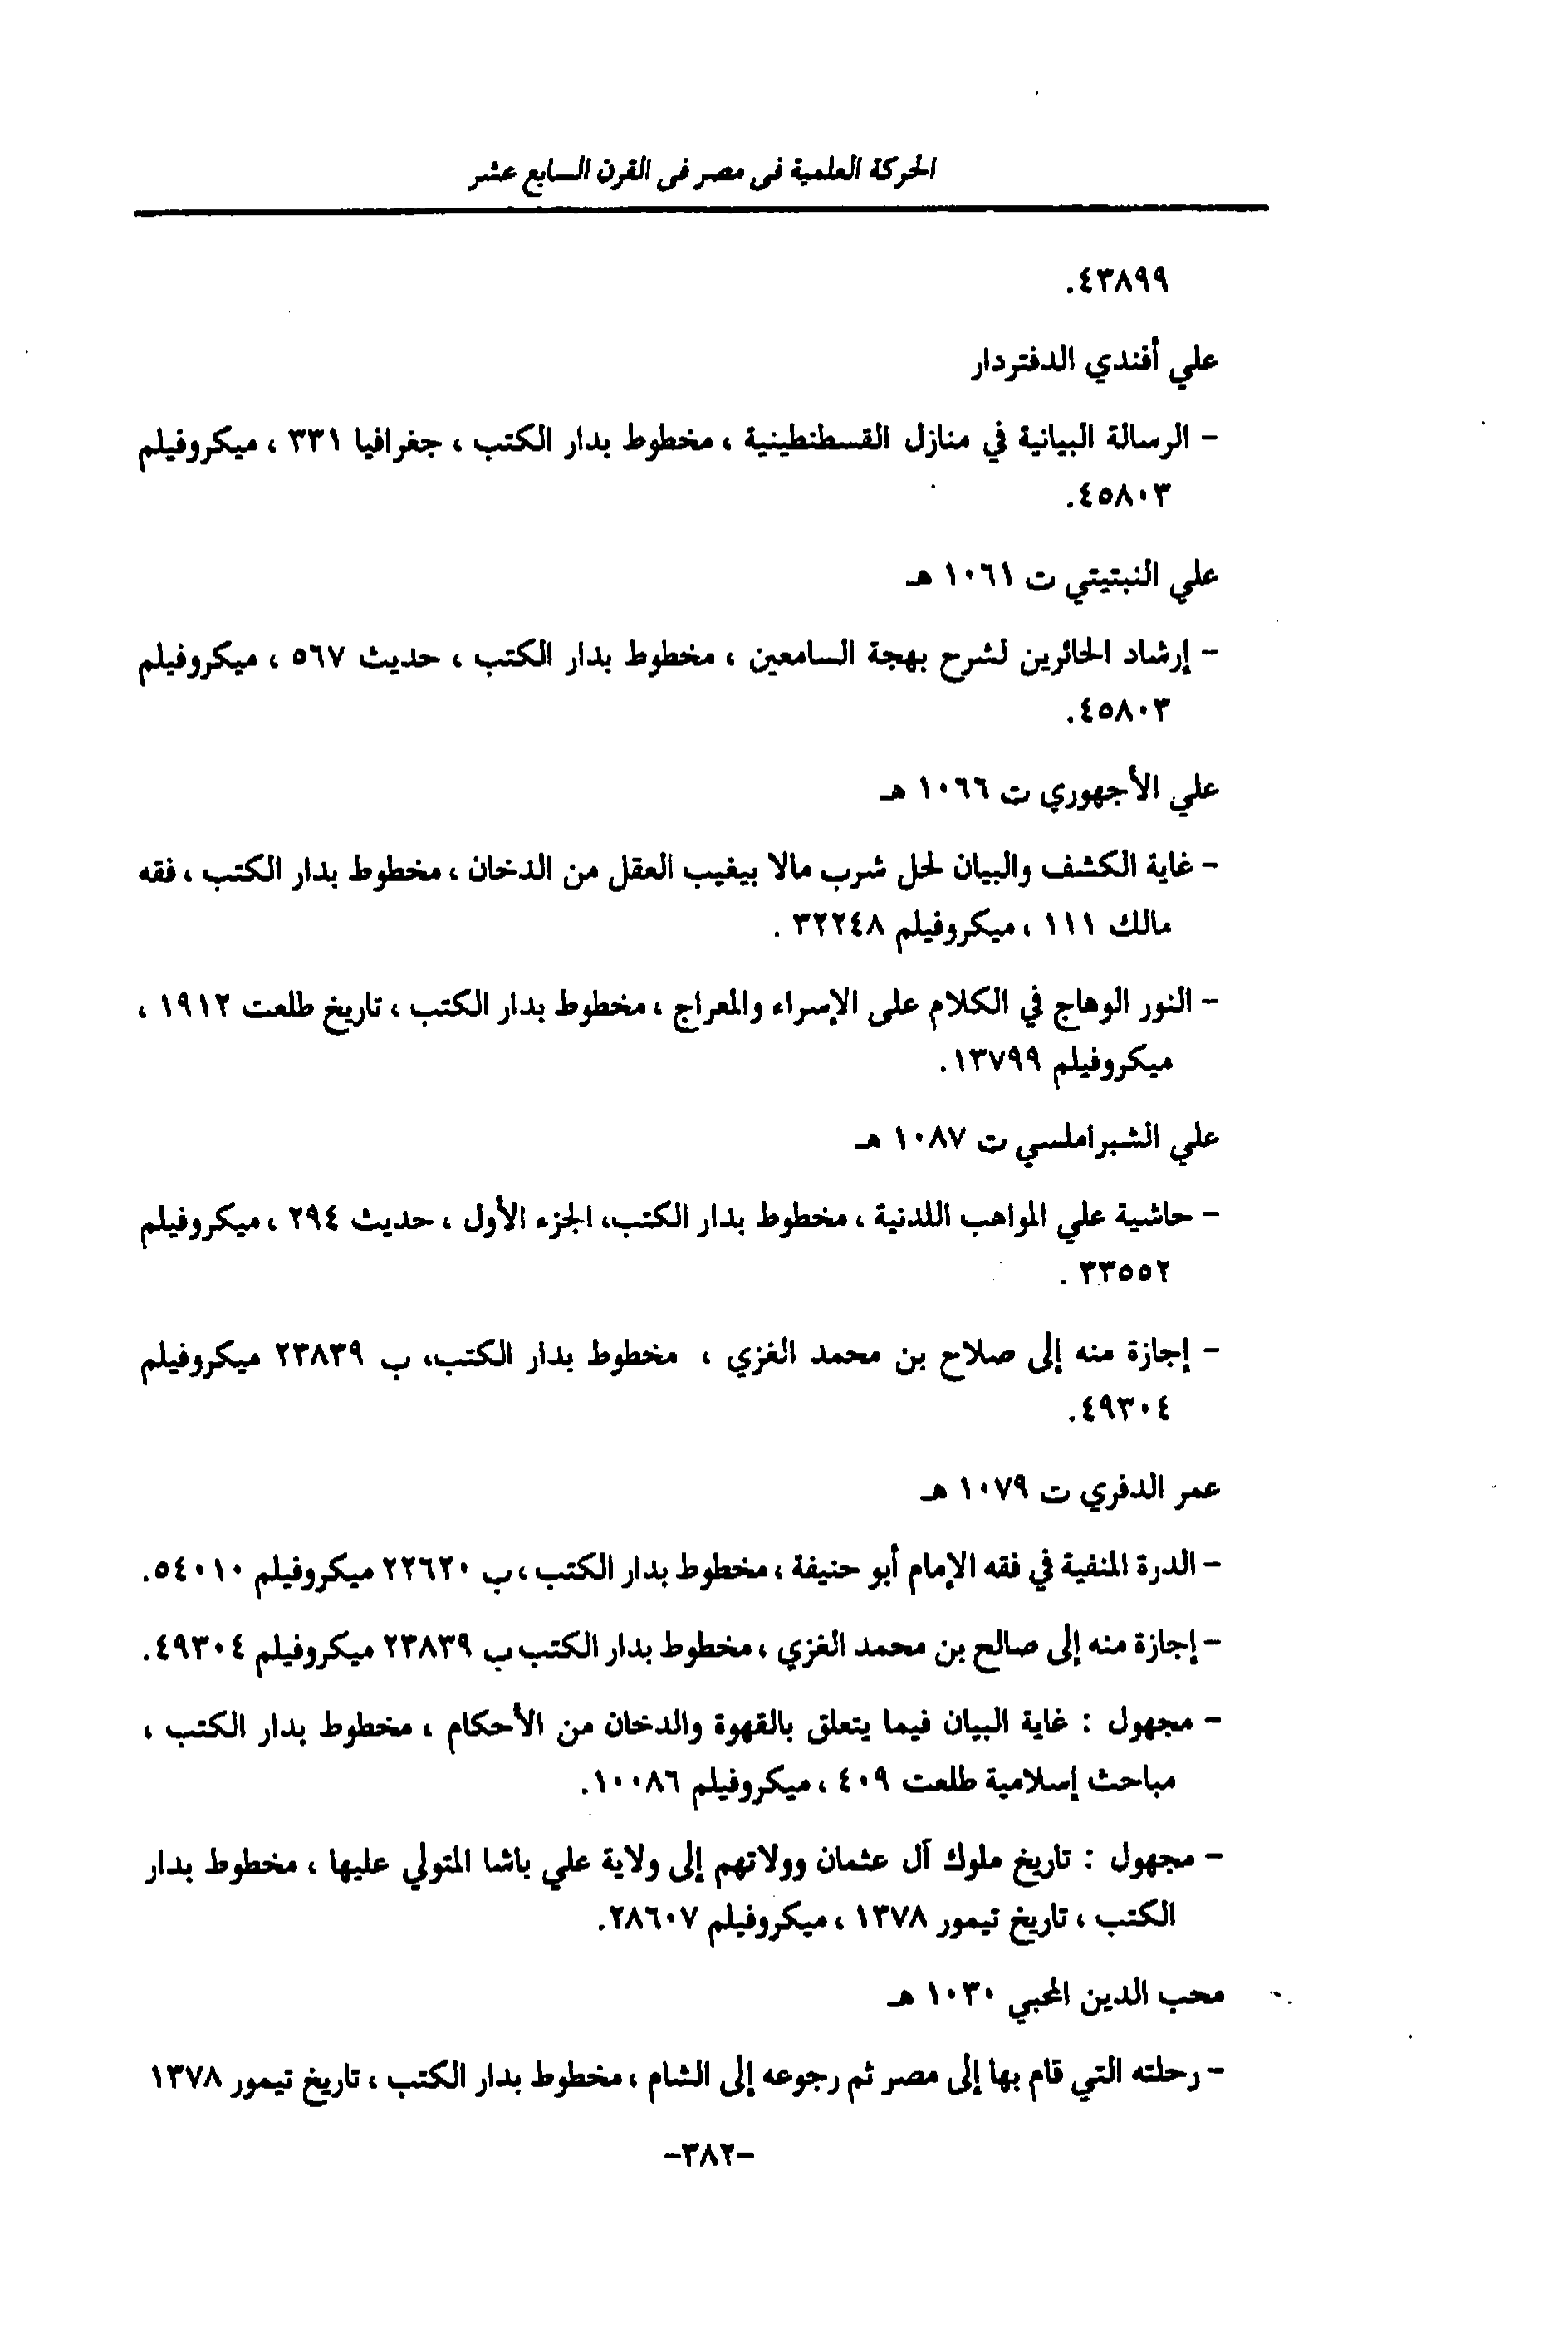 الحركة العلمية فى مصر فى القرن السابع عشر
٤٣٨٩٩.
علي أفندي الدفتردار
- الرسالة البيانية في منازل القسطنطينية ، مخطوط بدار الكتب ، جغرافيا ٣٣١ ، ميكروفيلم
٤٥٨٠٣.
علي النبتيتي ت ١٠٦١ هـ
- إرشاد الحائرين لشرح بهجة السامعين ، مخطوط بدار الكتب ، حديث ٥٦٧ ، ميكروفيلم
٤٥٨٠٣.
علي الأجهوري ت ١٠٦٦ هـ
- غاية الكشف والبيان لحل شرب مالا بيغيب العقل من الدخان ، مخطوط بدار الكتب ، فقه
مالك ١١١ ، ميكروفيلم ٣٢٢٤٨ .
- النور الوهاج في الكلام على الإسراء والمعراج ، مخطوط بدار الكتب ، تاريخ طلعت ١٩١٢ ،
ميكروفيلم ١٣٧٩٩.
علي الشبراملسي ت ١٠٨٧ هـ
- حاشية علي المواهب اللدنية ، مخطوط بدار الكتب، الجزء الأول ، حديث ٢٩٤ ، ميكروفيلم
٣٣٥٥٢ .
- إجازة منه إلى صلاح بن محمد الغزي ، مخطوط بدار الكتب، ب ٢٣٨٣٩ ميكروفيلم
٤٩٣٠٤.
عمر الدفري ت ١٠٧٩ هـ
- الدرة المنفية في فقه الإمام أبو حنيفة ، مخطوط بدار الكتب ، ب ٢٢٦٢٠ ميكروفيلم ٥٤٠١٠.
- إجازة منه إلى صالح بن محمد الغزي ، مخطوط بدار الكتب ب ٢٣٨٣٩ ميكروفيلم ٤٩٣٠٤.
- مجهول : غاية البيان فيما يتعلق بالقهوة والدخان من الأحكام ، مخطوط بدار الكتب ،
مباحث إسلامية طلعت ٤٠٩ ، ميكروفيلم ١٠٠٨٦.
- مجهول : تاريخ ملوك آل عثمان وولاتهم إلى ولاية علي باشا المتولي عليها ، مخطوط بدار
الكتب ، تاريخ تيمور ١٣٧٨ ، ميكروفيلم ٢٨٦٠٧.
محب الدين المحبي ١٠٣٠ هـ
- رحلته التي قام بها إلى مصر ثم رجوعه إلى الشام ، مخطوط بدار الكتب ، تاريخ تيمور ١٣٧٨
-٣٨٢-